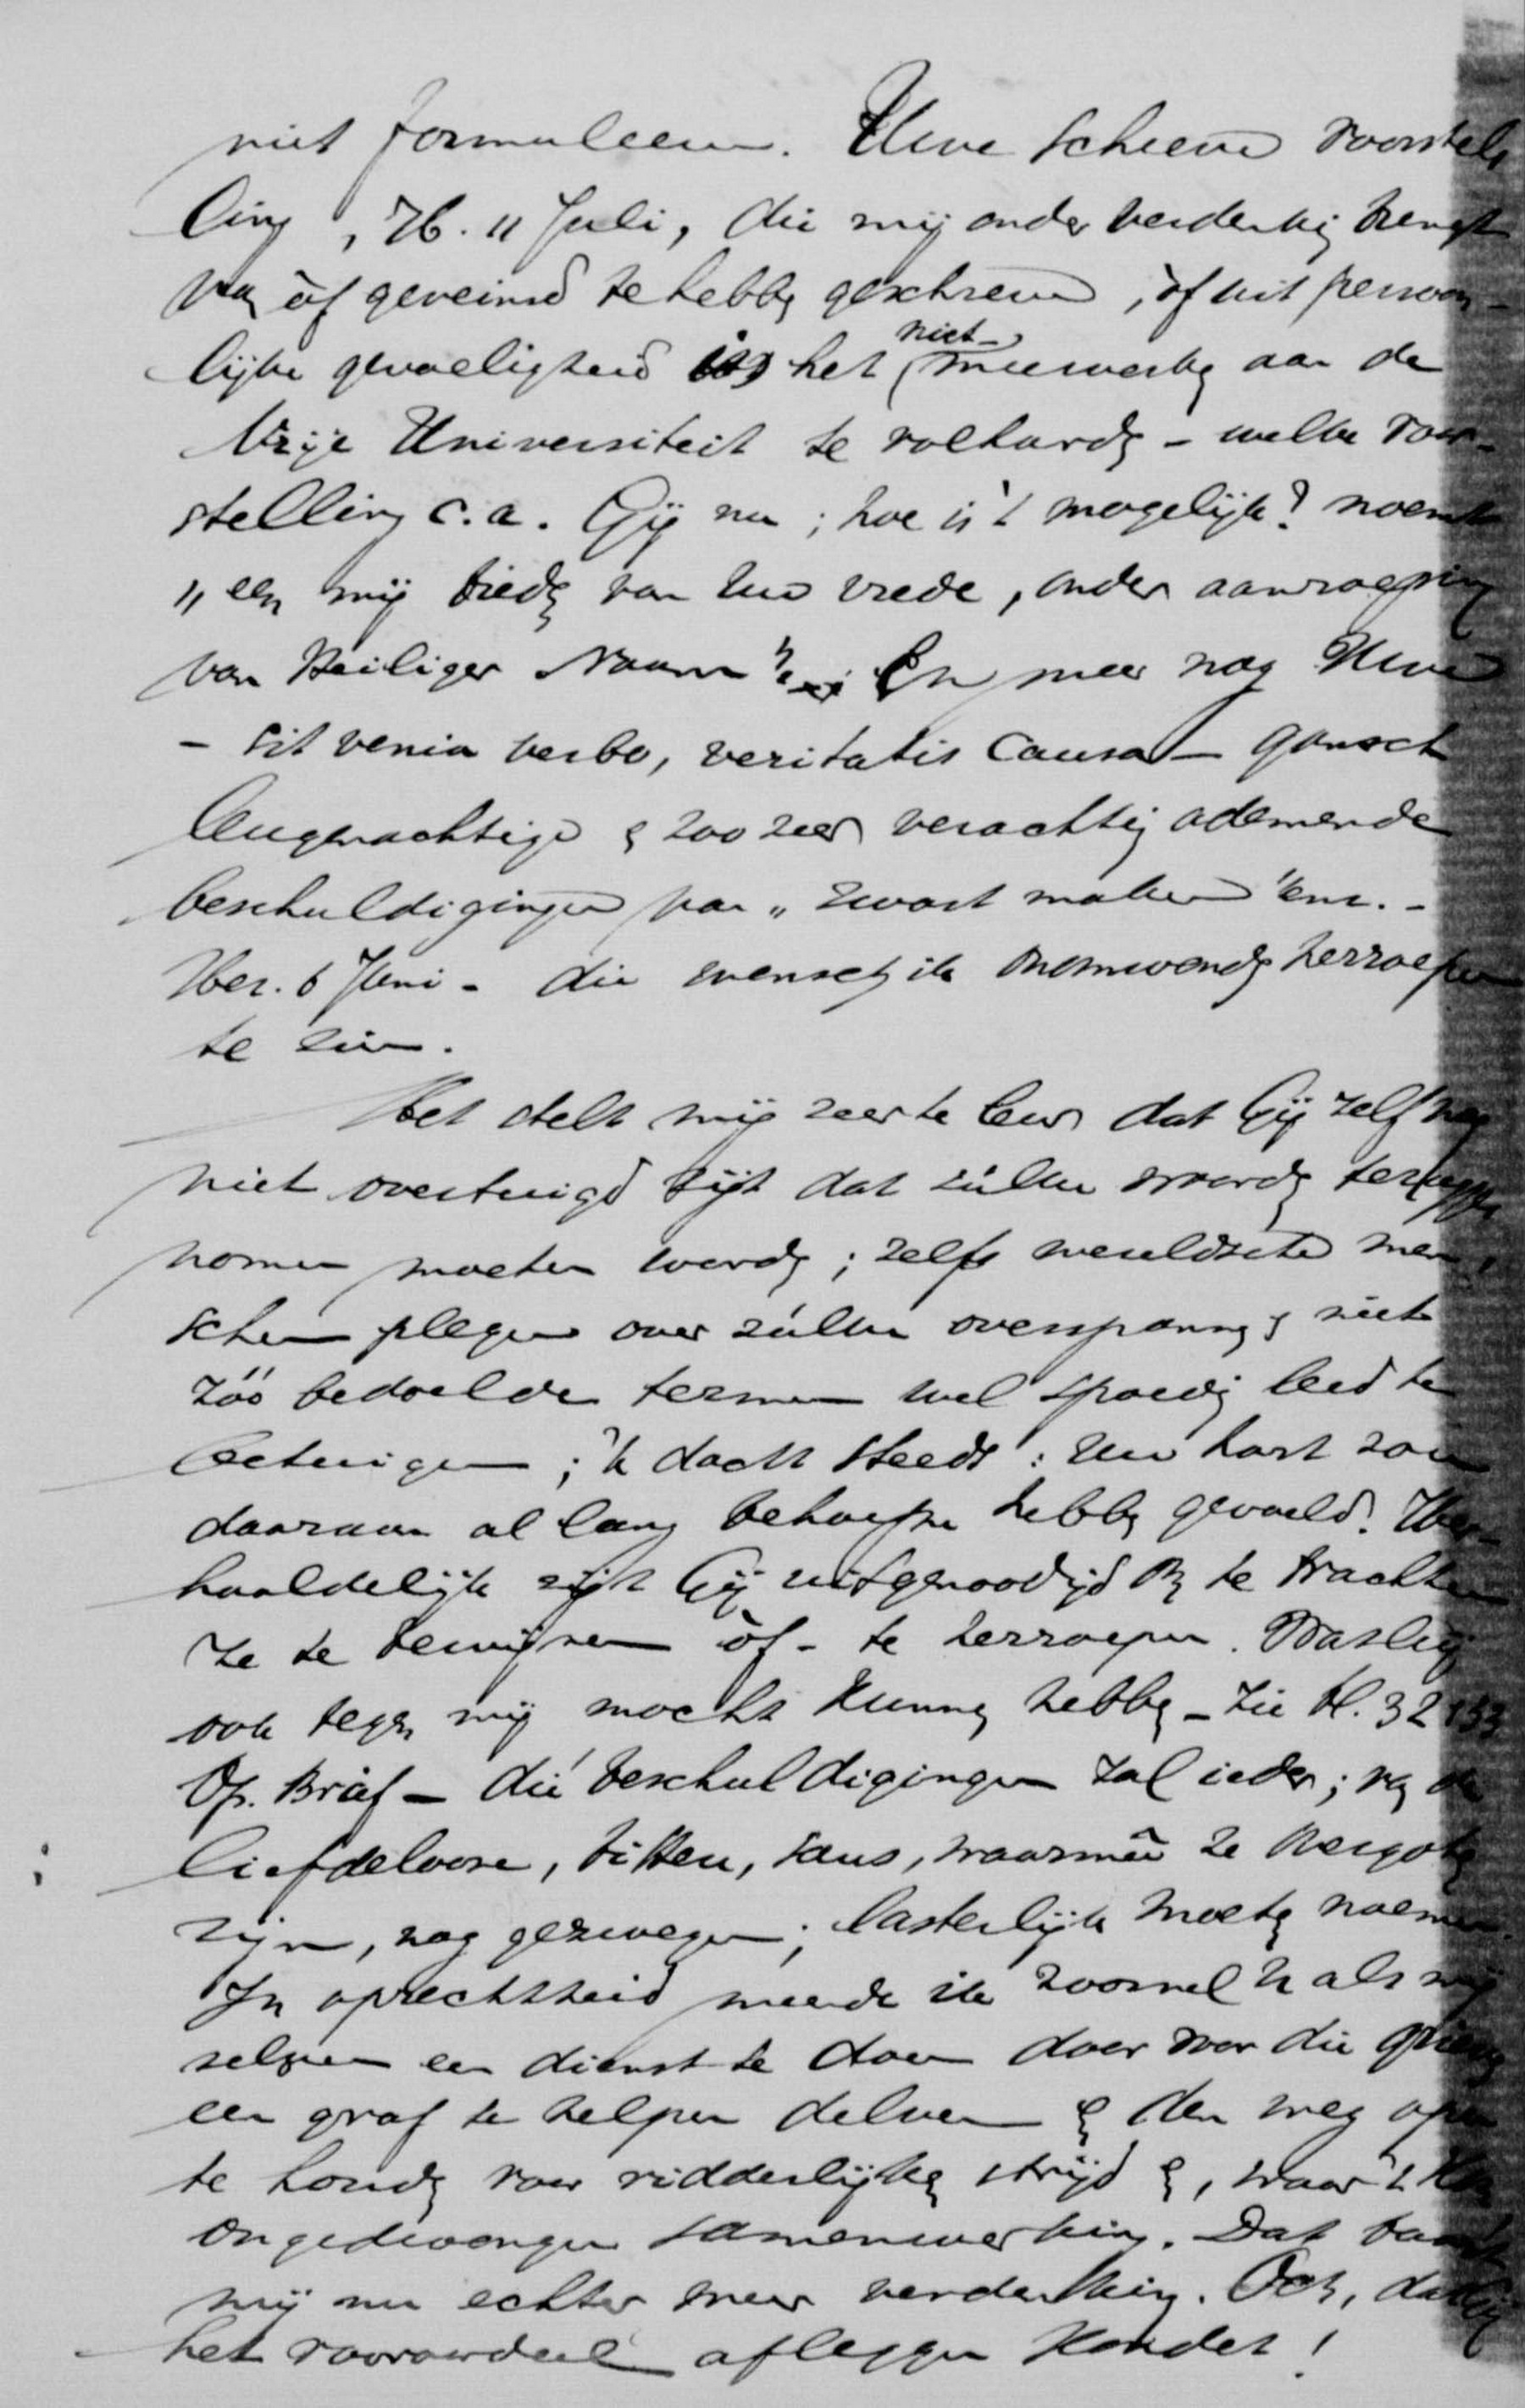 niet formuleeren. Uwe scheeve voorstel-
ling, Hb. 11 Juli, die mij onder verdenking brengt
van òf geveinsd te hebben geschreven, òf uit persoon-
lijke gevoeligheid in het niet-meewerken aan de
Vrije Universiteit te volharden - welke voor-
stelling c.a. Gij nu; hoe is 't mogelijk? noemt
"een mij bieden van Uw vrede, onder aanroeping
van Heiliger Naam". En meer nog Uwe
- sit venia verbo, veritatis causa - gansch
leugenachtige & zoo zeer verachting ademende
beschuldigingen van "zwart maken" enz. -
Her. 6 Juni - die wensch ik onomwonden herroepen
te zien.
Het stelt mij zeer te leur dat Gij zelf nog
niet overtuigd zijt dat zulke woorden terugge-
nomen moeten worden; zelfs wereldsche men-
schen plegen over zúlke overspannen & niet
zóó bedoelde termen wel spoedig leed te
betuigen; 'k dacht steeds: Uw hart zou
daaraan al lang behoefte hebben gevoeld. Her-
haaldelijk zijt Gij uitgenoodigd om te trachten
ze te bewijzen òf - te herroepen. Wat Gij
ook tegen mij mocht kunnen hebben - zie bl. 32 & 33
Op. Brief - dié beschuldigingen zal ieder; van de
liefdelooze, bittere saus, waarmêe ze overgoten
zijn, nog gezwegen; lasterlijk moeten noemen.
In oprechtheid meende ik zoowel U als mij
zelven een dienst te doen door voor die grieven
een graf te helpen delven & den weg open
te houden voor ridderlijken strijd &, waar 't kan
ongedwongen samenwerking. Dat baart
mij nu echter meer verdenking. Och, dat Gij
het vooroordeel afleggen kondet!